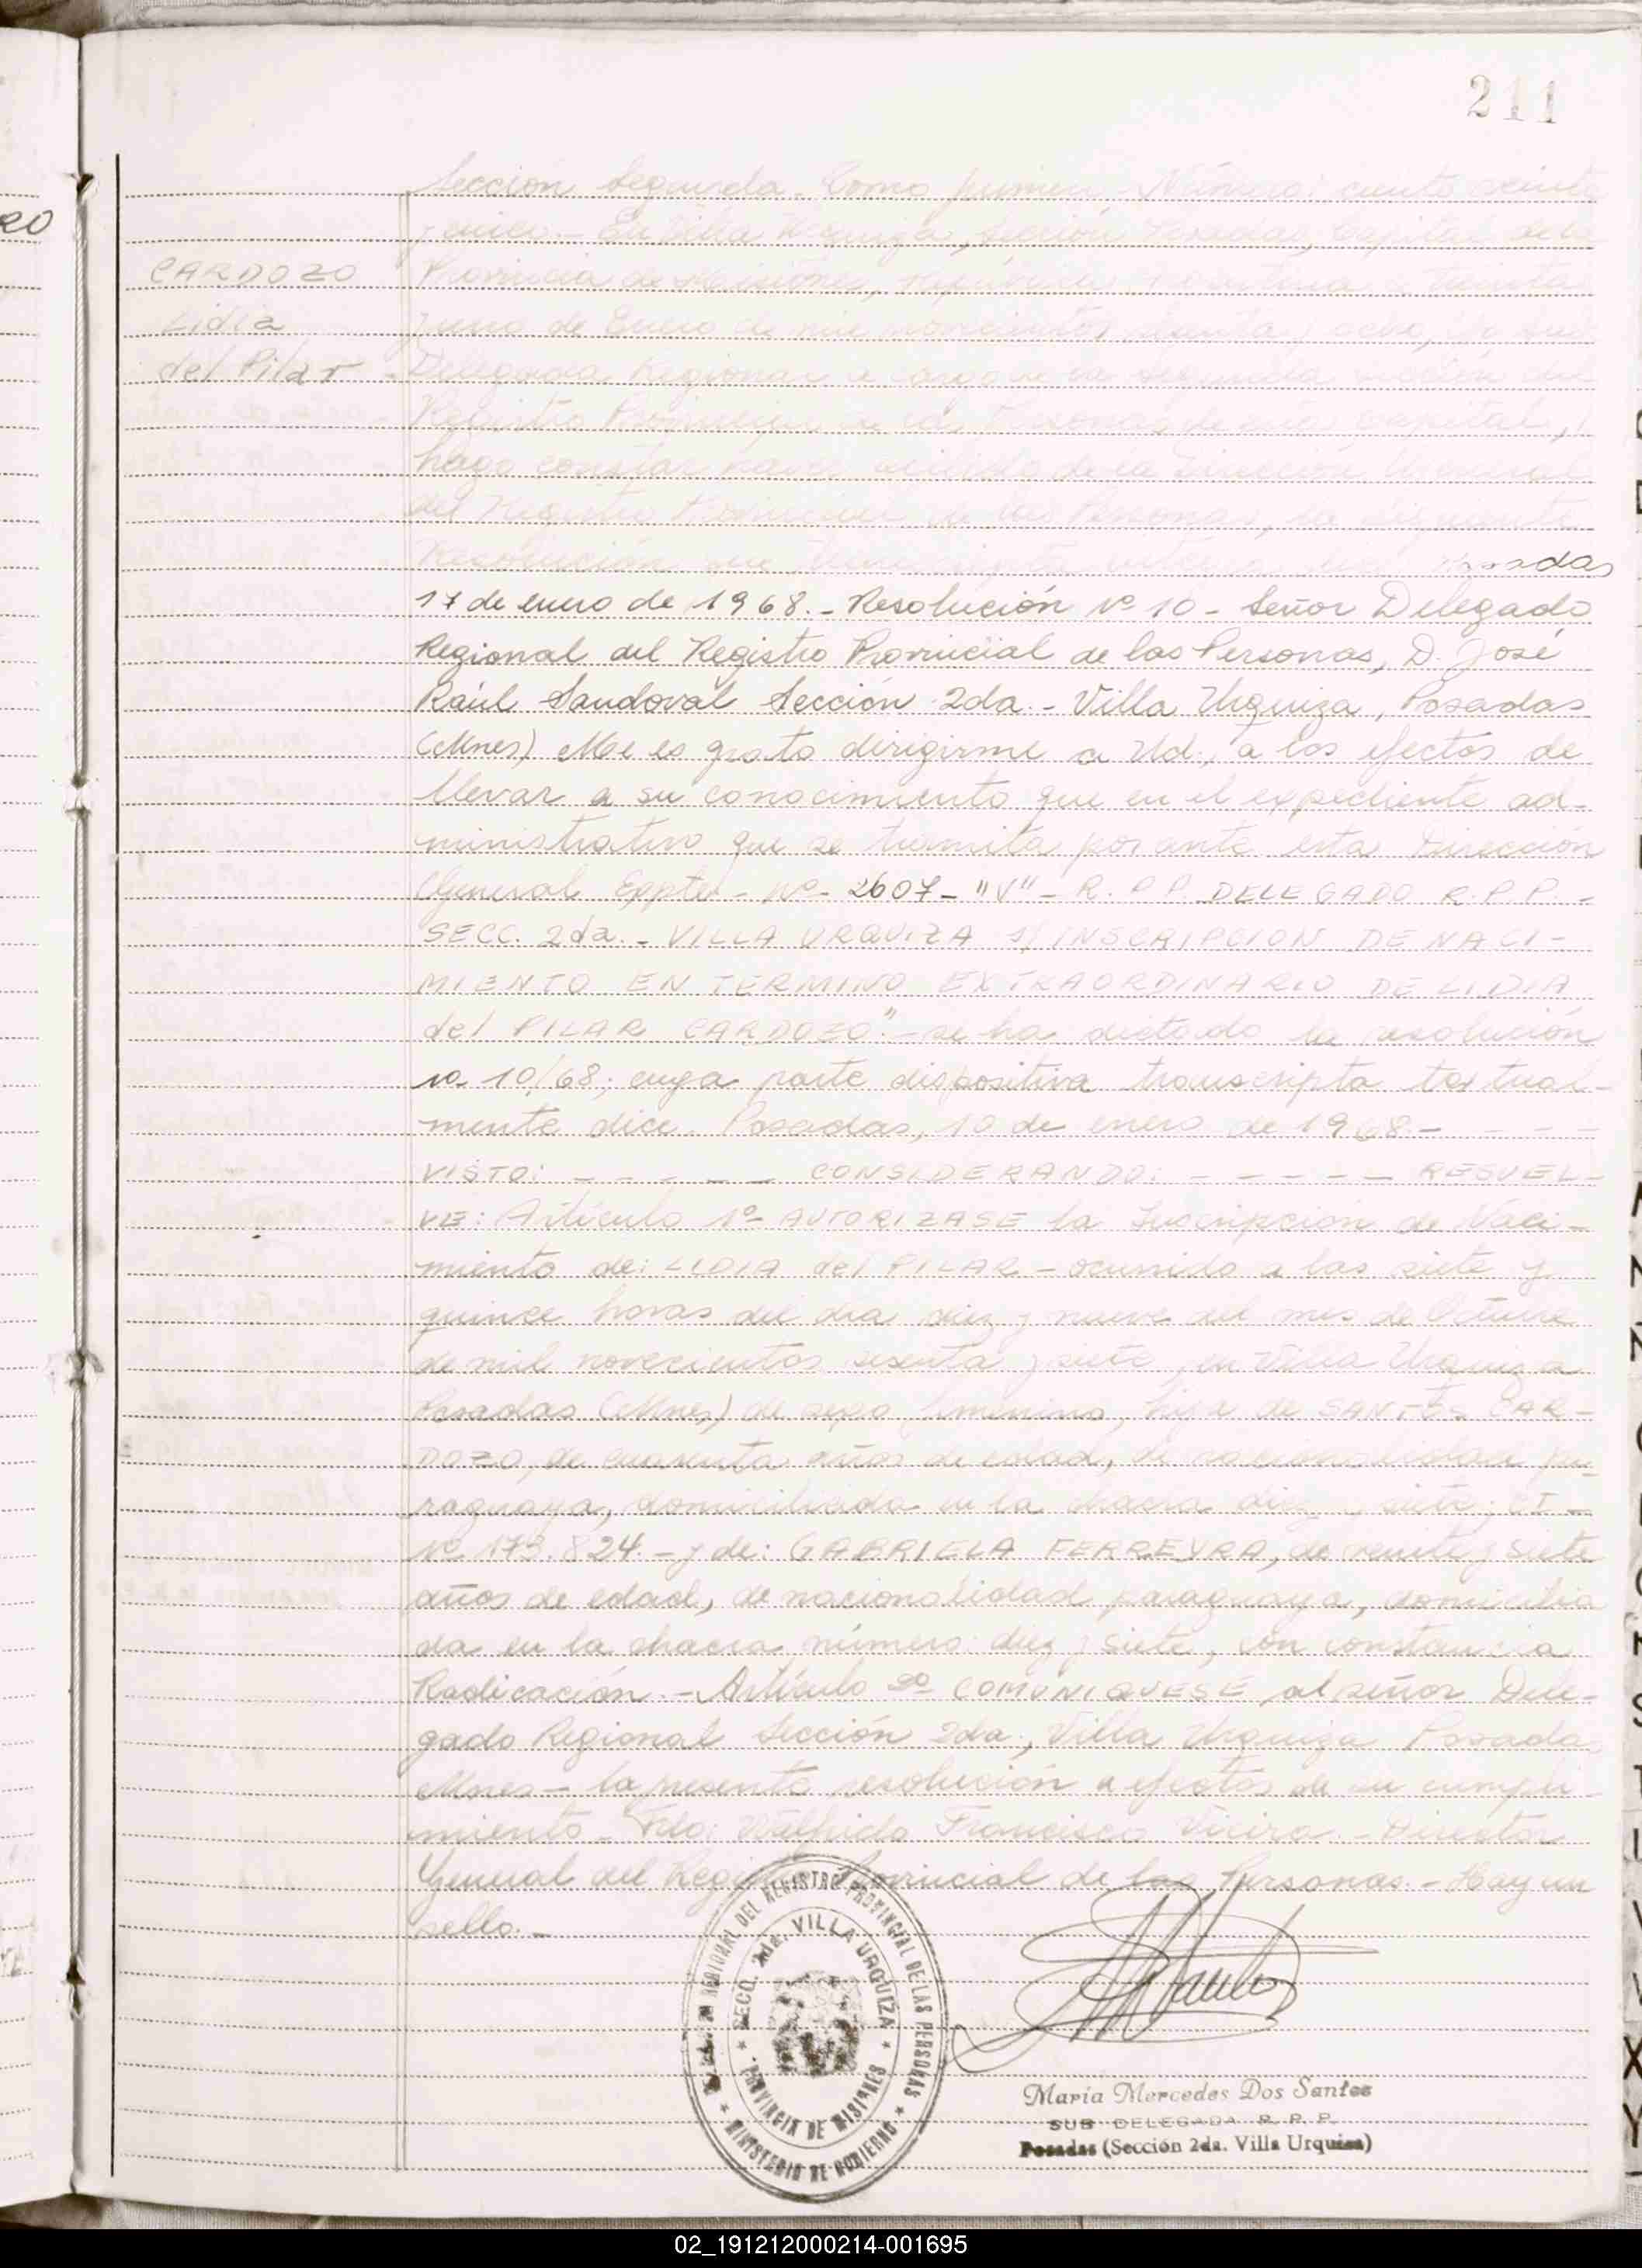 211
CARDOZO
Lidia
del Pilar
Sección Segunda. Como primera - Número: ciento veinte
y cinco.- En Villa Urquiza, Sección Posadas, Capital de la
Provincia de Misiones, República Argentina a treinta
y uno de Enero de mil novecientos sesenta y ocho, Yo Sub
Delegada Regional a cargo de la segunda sección del
Registro Provincial de las Personas de esta capital,
hago constar haber recibido de la Dirección General
del Registro Provincial de las Personas, la siguiente
Resolución que
17 de enero de 1968.- Resolución Nº 10 - Señor Delegado
Regional del Registro Provincial de las Personas, D. José
Raúl Sandoval Sección 2da. - Villa Urquiza, Posadas
(Mnes) Me es grato dirigirme a Ud., a los efectos de
llevar a su conocimiento que en el expediente ad-
ministrativo que se tramita por ante esta Dirección
General Expte - Nº - 2607 - "V" - R.P.P. DELEGADO R.P.P. -
SECC. 2da. - VILLA URQUIZA s/ INSCRIPCION DE NACI-
MIENTO EN TERMINO EXTRAORDINARIO DE LIDIA
del PILAR CARDOZO". - se ha dictado la resolución
no 10/68; cuya parte dispositiva transcripta textual-
mente dice. Posadas, 10 de enero de 1968 - - - -
VISTO: - - - - - CONSIDERANDO: - - - - - RESUEL-
VE: Artículo 1º AUTORIZASE la Inscripción de Naci-
miento de: LIDIA del PILAR - ocurrido a las siete y
quince horas del día diez y nueve del mes de Octubre
de mil novecientos sesenta y siete, en Villa Urquiza
Posadas (Mnes) de sexo femenino, hija de SANTOS CAR-
DOZO, de cuarenta años de edad, de nacionalidad pa-
raguaya, domiciliada en la chacra diez y siete; CI -
Nº 173.824. - y de: GABRIELA FERREYRA, de veinte y siete
años de edad, de nacionalidad paraguaya, domicilia
da en la chacra número: diez y siete, con constancia
Radicación. - Artículo 2º COMUNIQUESE al señor Dele-
gado Regional Sección 2da., Villa Urquiza Posadas
Mnes - la presente resolución a efectos de su cumpli
miento - Fdo: Wilfrido Francisco Vieira. - Director
General del Registro Provincial de las Personas. - Hay un
sello. -
REGIONAL DEL REGISTRO PROVINCIAL DE LAS PERSONAS
SECC. 2da. VILLA URQUIZA
PROVINCIA DE MISIONES
MINISTERIO DE GOBIERNO
María Mercedes Dos Santos
SUB DELEGADA R. P. P.
Posadas (Sección 2da. Villa Urquiza)
02_191212000214-001695